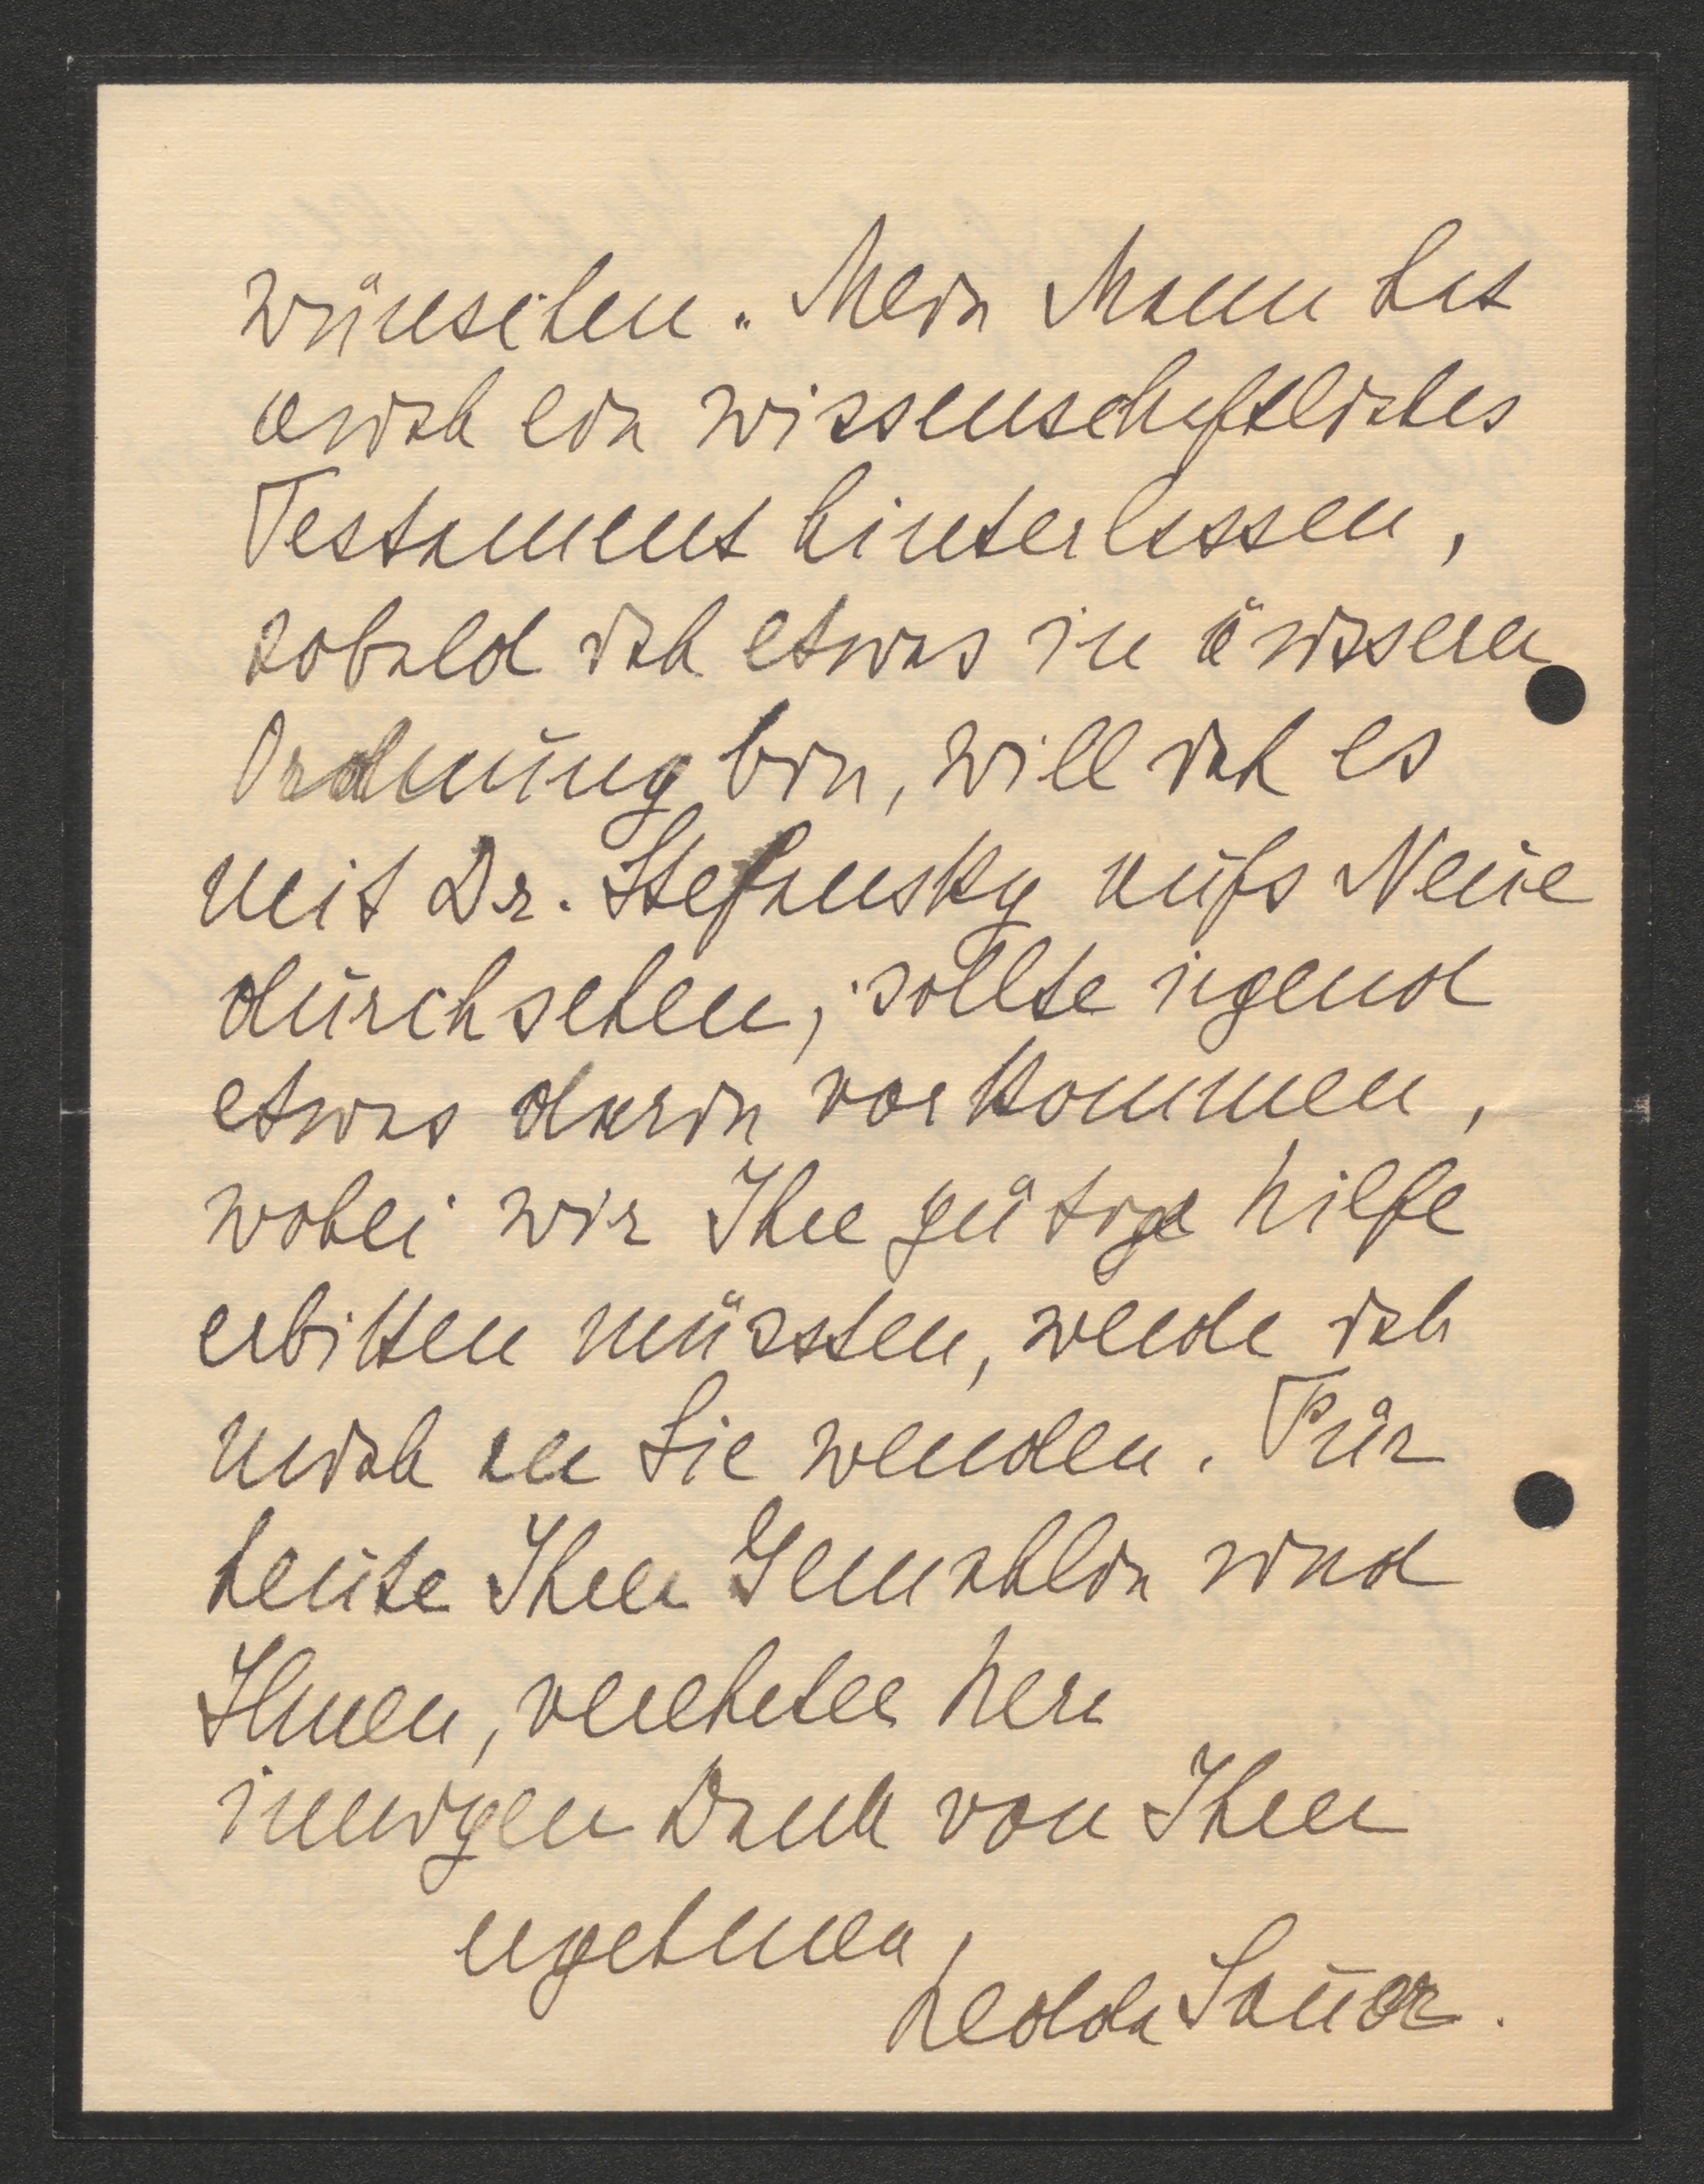 wünschen. Mein Mann hat
auch ein wissenschaftliches
Testament hinterlassen,
sobald ich etwas in äusserer
Ordnung bin, will ich es
mit Dr. Stefansky aufs Neue
durchsehen; sollte irgend
etwas darin vorkommen,
wobei wir Ihre gütige Hilfe
erbitten müssten, werde ich
mich an Sie wenden. Für
heute Ihrer Gemahlin und
Ihnen, verehrter Herr
innigen Dank von Ihrer
ergebenen
Hedda Sauer.